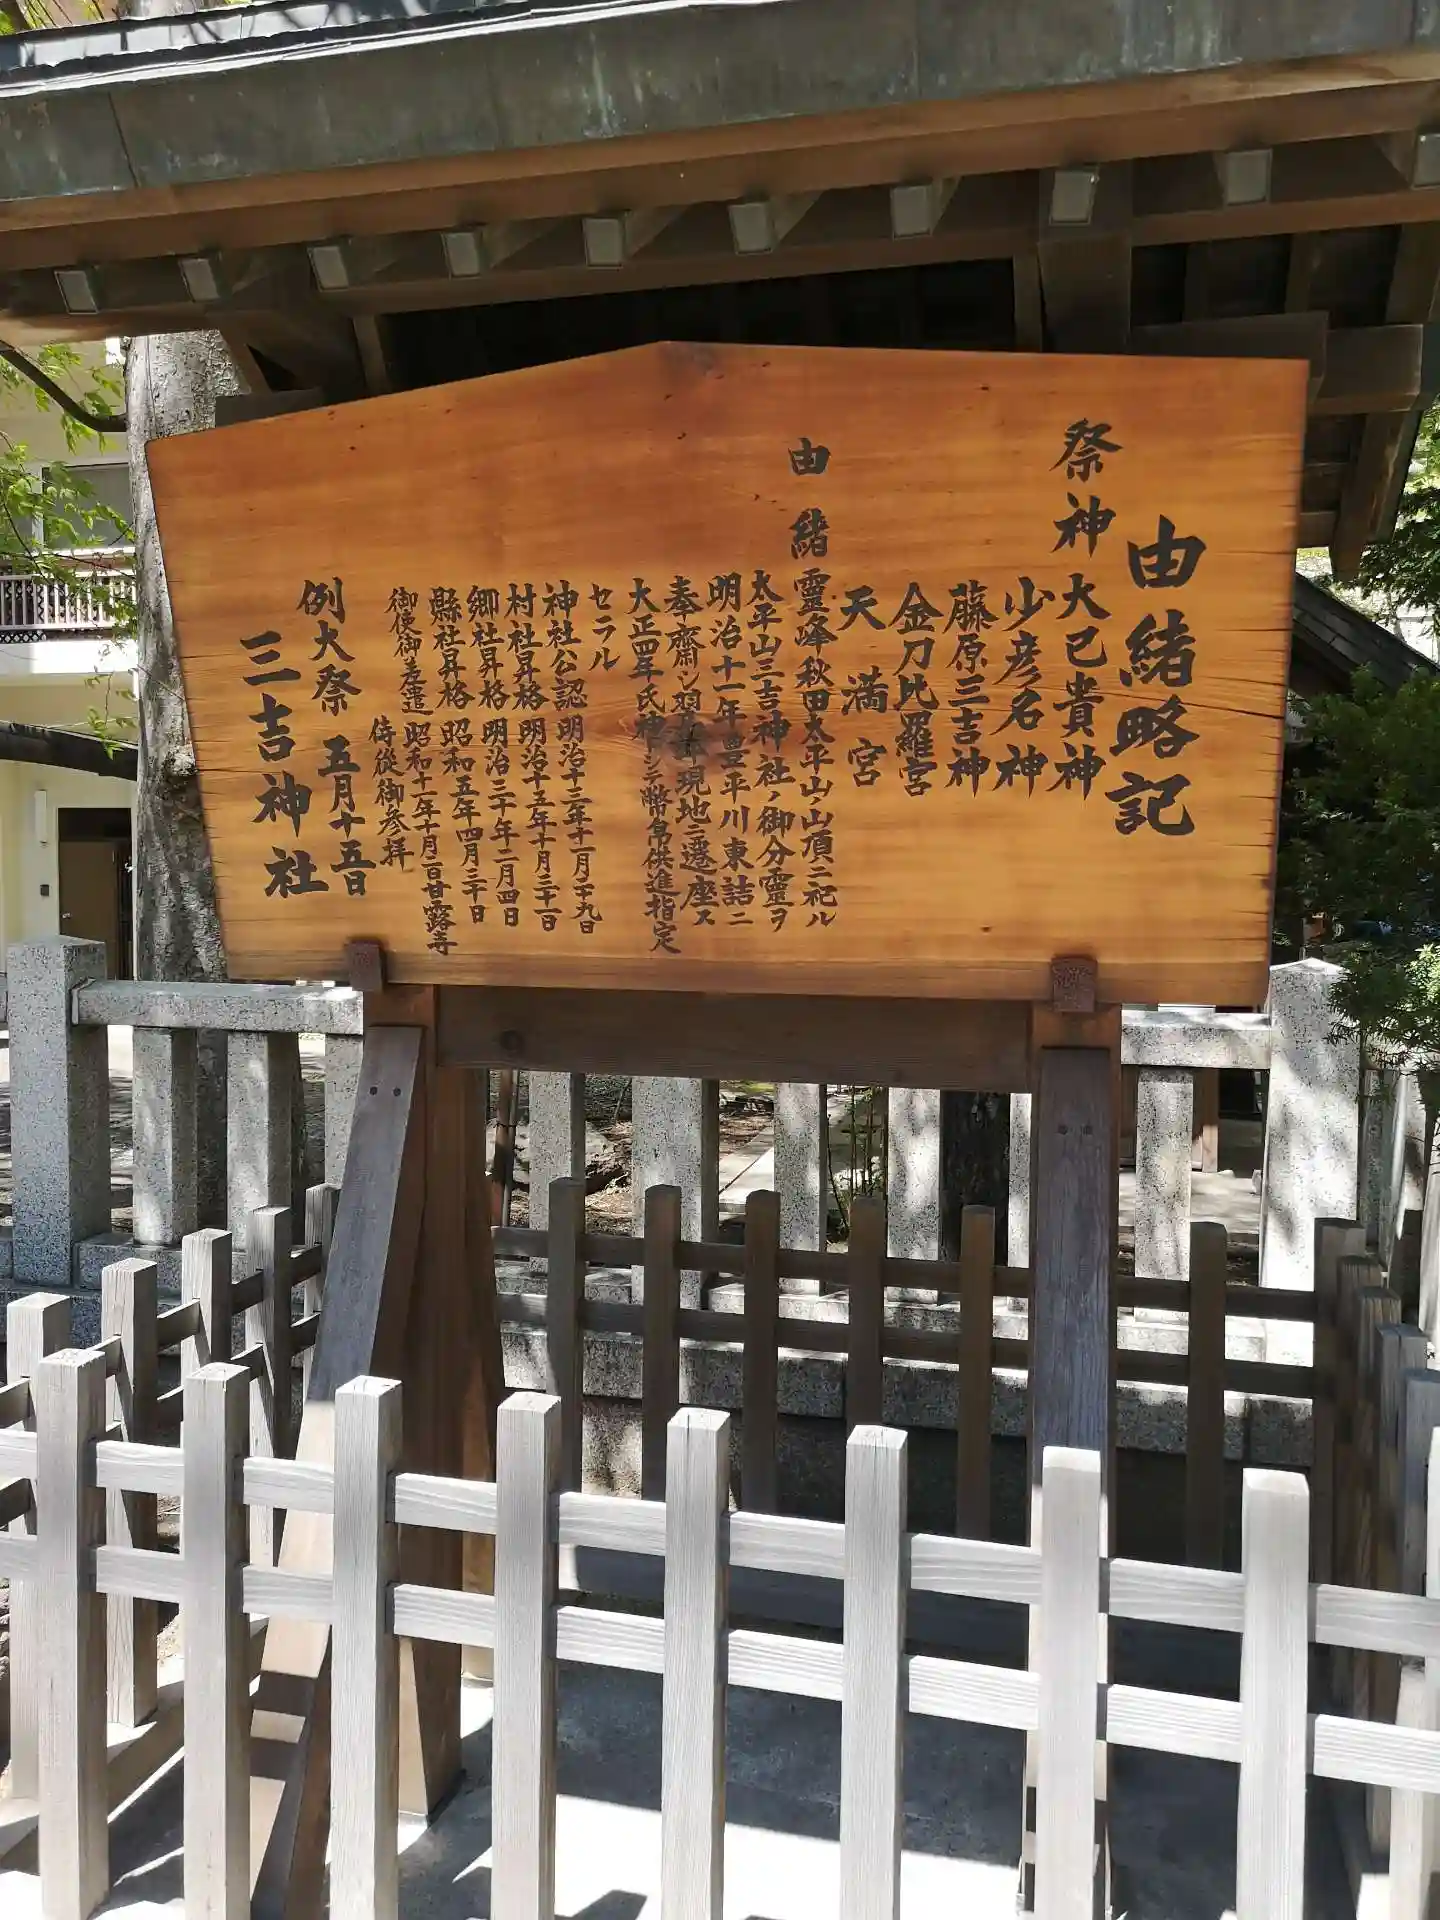 由緒略記
祭神 大已貴神
少彦名神
藤原三吉神
金刀比羅宮
天満宮
由緒 靈峰秋田太平山ノ山頂ニ祀ル
太平山三吉神社ノ御分靈ヲ
明治十一年豊平川東詰ニ
奉齋シ翌 年現地ニ遷座ス
大正四年氏神トシ ニ幣帛供進指定
セラル
神社公認 明治十三年十一月二十九日
村社昇格 明治十五年十月三十一日
郷社昇格 明治三十年二月四日
縣社昇格 昭和五年四月三十日
御使御差遣 昭和十一年十月二日甘露寺
侍従御参拝
例大祭 五月十五日
三吉神社